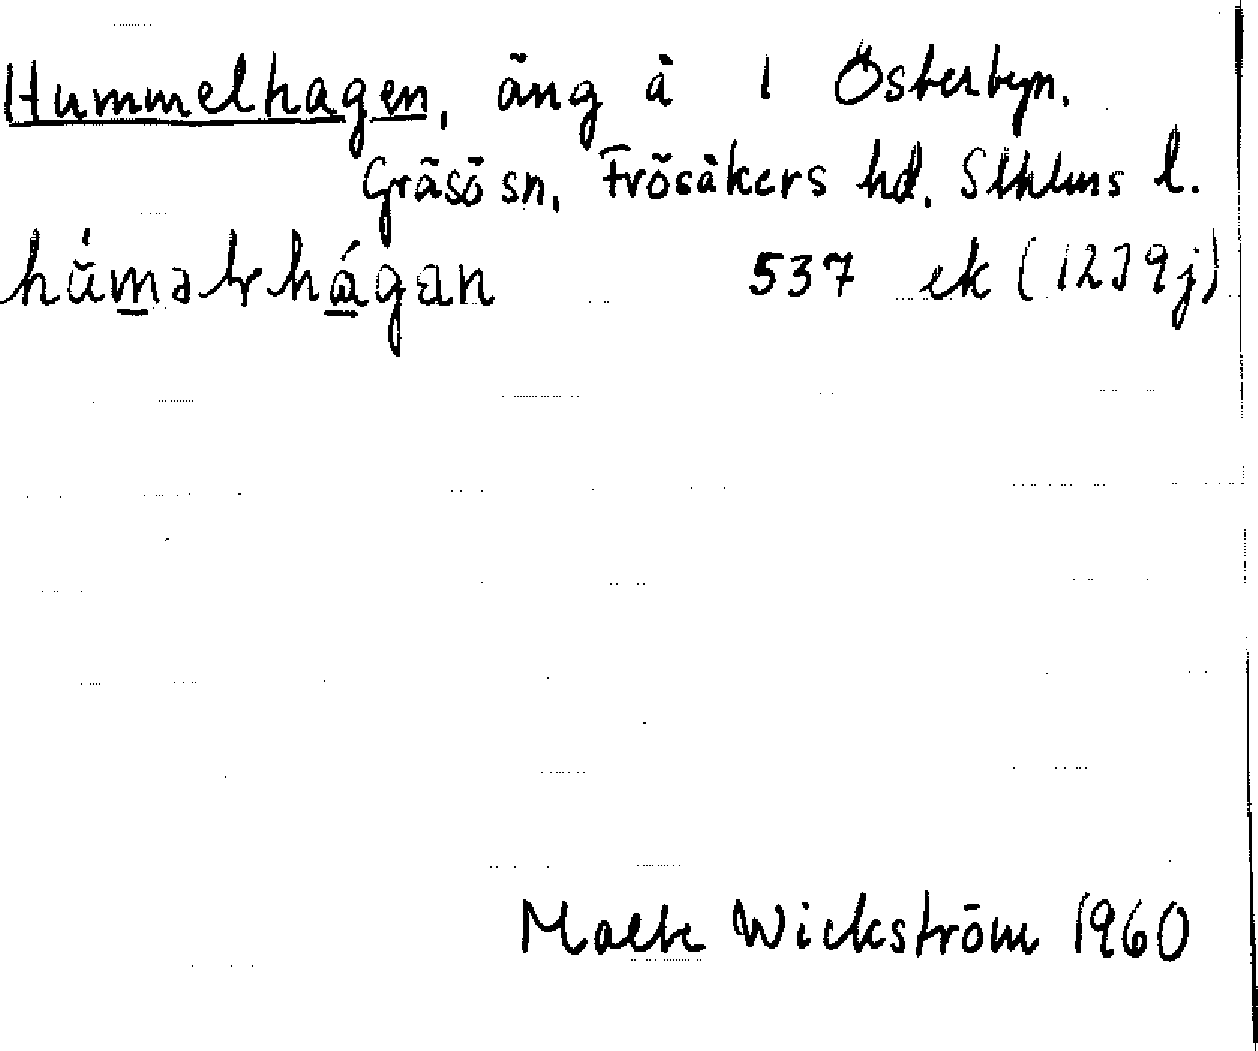 Hummelhagen, äng å 1 Österbyn.
Gräsö sn, Frösåkers hd. Sthlms l.
537 ek (1239j)
Malte Wickström 1960